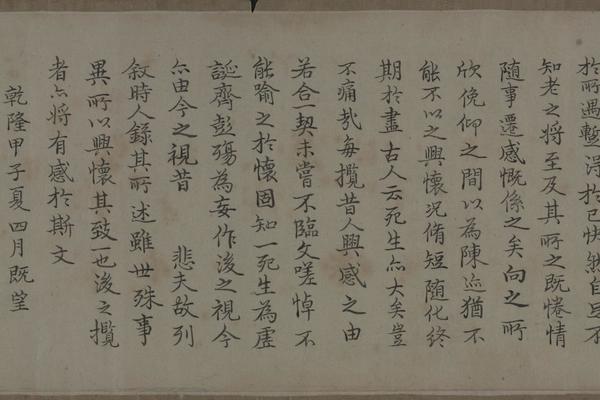 於所遇蹔得於己快然自足不
知老之將至及其所之既惓情
隨事遷感慨係之矣向之所
欣俛仰之間以為陳迹猶不
能不以之興懷況脩短隨化終
期於盡古人云死生亦大矣豈
不痛哉每攬昔人興感之由
若合一契未嘗不臨文嗟悼不
能喻之於懷固知一死生為虛
誕齊彭殤為妄作後之視今
亦由今之視昔 悲夫故列
敘時人錄其所述雖世殊事
異所以興懷其致一也後之攬
者亦將有感於斯文
乾隆甲子夏四月既望